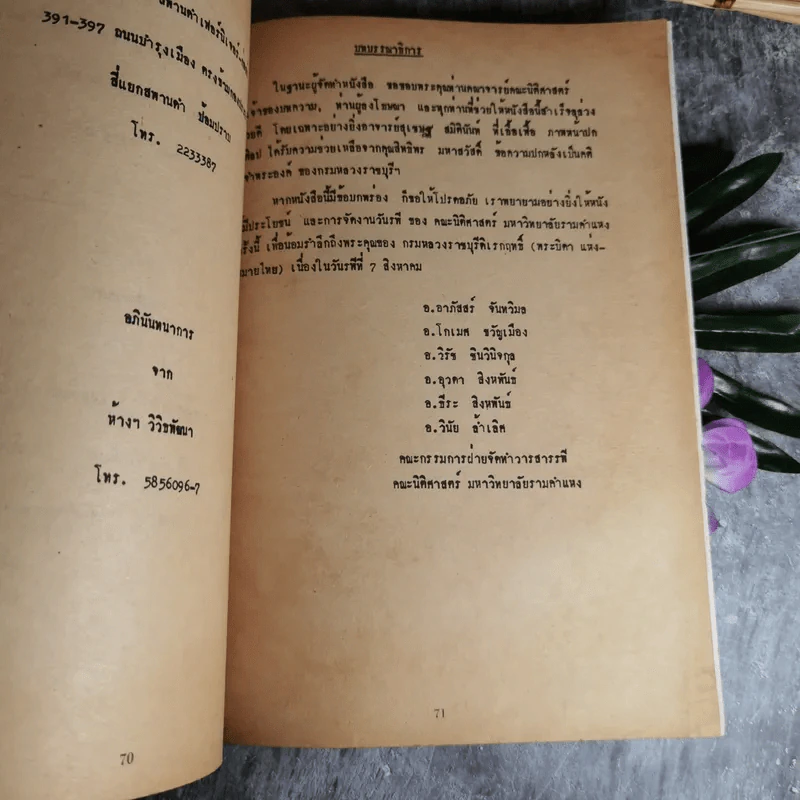 391-397 ถนนบำรุงเมือง
สี่แยกสพานดำ ป้อมปราบ
โทร. 2233387
อภินันทนาการ
จาก
ห้างฯ วิวิธพัฒนา
โทร. 5856096-7
70
บทบรรณาธิการ
ในฐานะผู้จัดทำหนังสือ ขอขอบพระคุณท่านคณาจารย์คณะนิติศาสตร์
เจ้าของบทความ, ท่านผู้ลงโฆษณา และทุกท่านที่ช่วยให้หนังสือนี้สำเร็จลุล่วง
โดยเฉพาะอย่างยิ่งอาจารย์สุเชษฐ สมิตินันท์ ที่เอื้อเฟื้อ ภาพหน้าปก
ได้รับความช่วยเหลือจากคุณสิทธิพร มหาสวัสดิ์ ข้อความปกหลังเป็นคติ
พระองค์ ของกรมหลวงราชบุรีฯ
หากหนังสือนี้มีข้อบกพร่อง ก็ขอให้โปรดอภัย เราพยายามอย่างยิ่งให้หนัง
มีประโยชน์ และการจัดงานวันรพี ของ คณะนิติศาสตร์ มหาวิทยาลัยรามคำแหง
ครั้งนี้ เพื่อน้อมรำลึกถึงพระคุณของ กรมหลวงราชบุรีดิเรกฤทธิ์ (พระบิดา แห่ง-
มายไทย) เนื่องในวันรพีที่ 7 สิงหาคม
อ.อาภัสสร์ จันทวิมล
อ.โกเมศ ขวัญเมือง
อ.วิรัช ชินวินิจกุล
อ.อุวดา สิงหพันธ์
อ.ธีระ สิงหพันธ์
อ.วินัย ล้ำเลิศ
คณะกรรมการฝ่ายจัดทำวารสารรพี
คณะนิติศาสตร์ มหาวิทยาลัยรามคำแหง
71